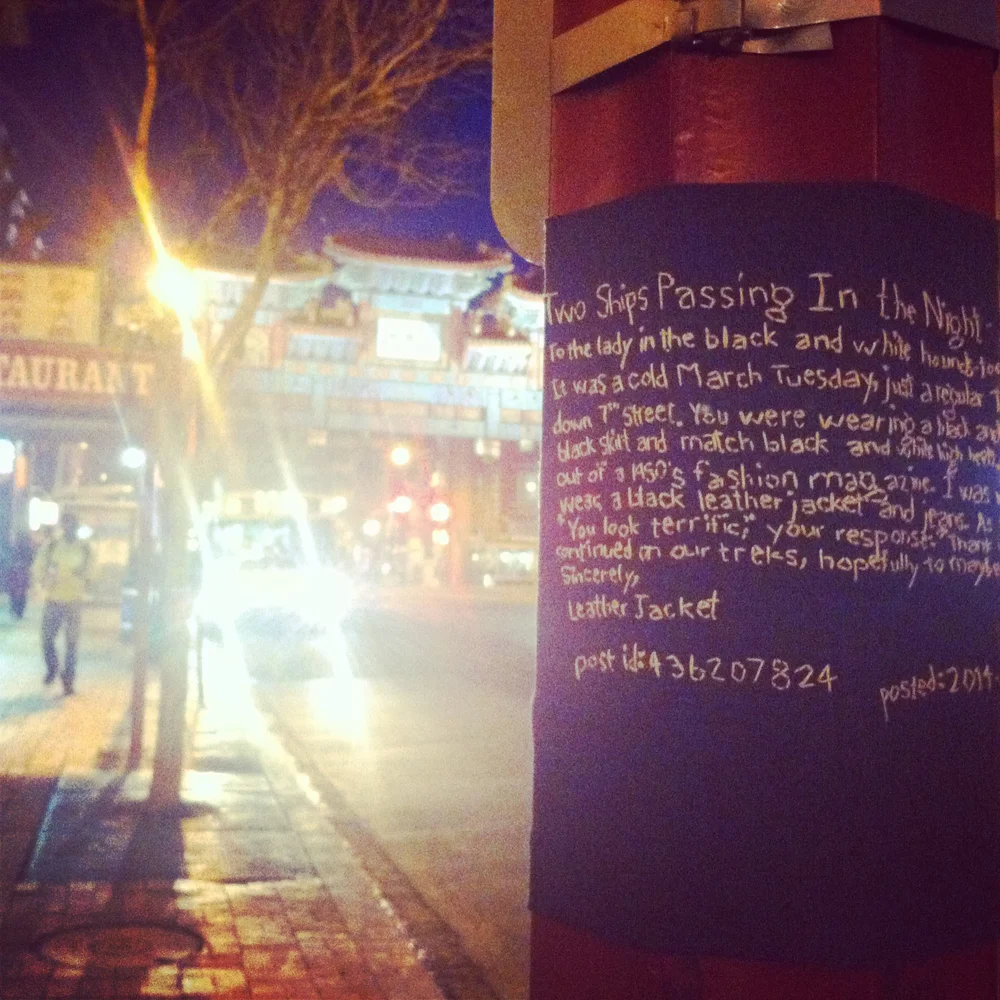 TAURANT
Two Ships Passing In the Night
To the lady in the black and white hounds-too
It was a cold March Tuesday, just a regular T
down 7th Street. You were wearing a black and
black skirt and match black and white high heels
out of a 1950's fashion magazine. I was
wear, a black leather jacket and jeans. As
"You look terrific," your response: "Thank
continued on our treks, hopefully to maybe
Sincerely,
Leather Jacket
post id: 436207824
posted: 2014-